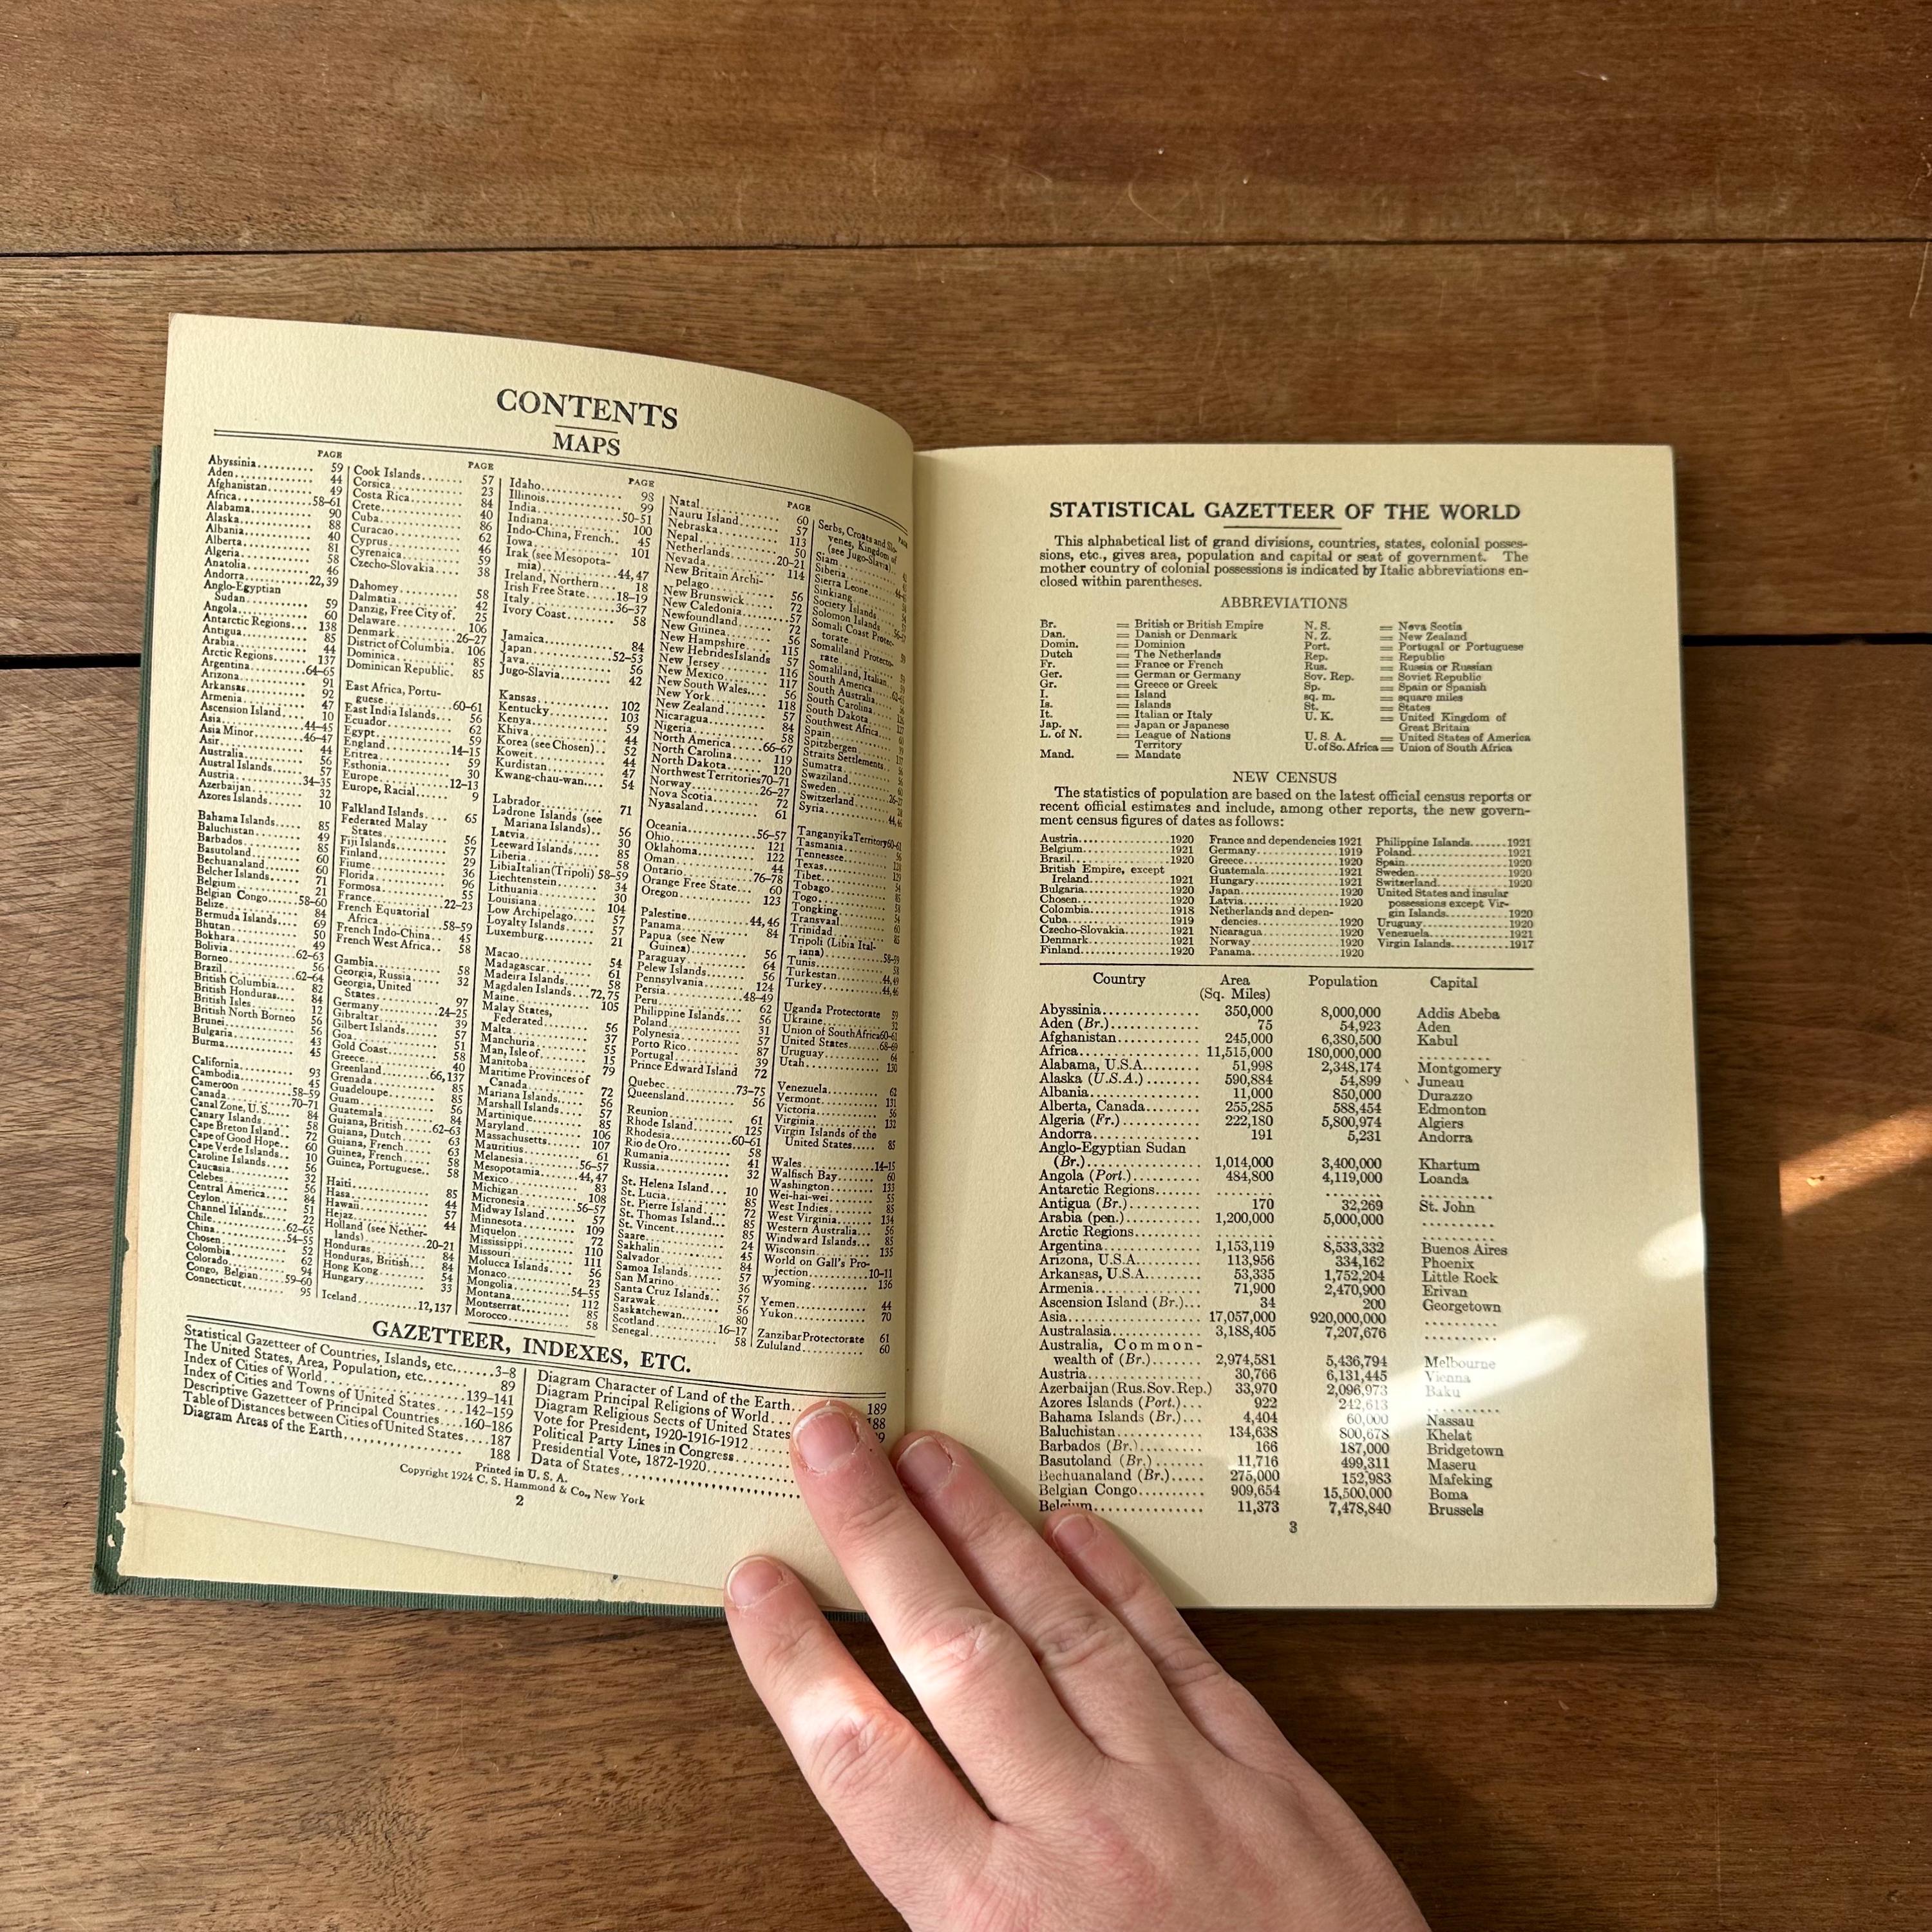 CONTENTS
MAPS
PAGE
Abyssinia.......... 59
Aden.......... 44
Afghanistan.......... 49
Africa..........58-61
Alabama.......... 90
Alaska.......... 88
Albania.......... 40
Alberta.......... 81
Algeria.......... 58
Anatolia.......... 46
Andorra..........22,39
Anglo-Egyptian
Sudan.......... 59
Angola.......... 60
Antarctic Regions.... 138
Antigua.......... 85
Arabia.......... 44
Arctic Regions...... 137
Argentina..........64-65
Arizona.......... 91
Arkansas.......... 92
Armenia.......... 47
Ascension Island.... 10
Asia..........44-45
Asia Minor......46-47
Asir.......... 44
Australia.......... 56
Austral Islands...... 57
Austria..........34-35
Azerbaijan.......... 32
Azores Islands...... 10
Bahama Islands..... 85
Baluchistan........ 49
Barbados.......... 85
Basutoland........ 60
Bechuanaland...... 60
Belcher Islands..... 71
Belgium.......... 21
Belgian Congo....58-60
Belize.......... 84
Bermuda Islands.... 69
Bhutan.......... 50
Bokhara.......... 49
Bolivia..........62-63
Borneo.......... 56
Brazil..........62-64
British Columbia.... 82
British Honduras.... 84
British Isles........ 12
British North Borneo 56
Brunei.......... 56
Bulgaria.......... 43
Burma.......... 45
California.......... 93
Cambodia.......... 45
Cameroon........58-59
Canada..........70-71
Canal Zone, U.S.... 84
Canary Islands...... 58
Cape Breton Island.. 72
Cape of Good Hope.. 60
Cape Verde Islands.. 10
Caroline Islands.... 56
Caucasia.......... 32
Celebes.......... 56
Central America.... 84
Ceylon.......... 51
Channel Islands.... 22
Chile..........62-65
China..........54-55
Chosen.......... 52
Colombia.......... 62
Colorado.......... 94
Congo, Belgian....59-60
Connecticut........ 95
PAGE
Cook Islands....... 57
Corsica.......... 23
Costa Rica........ 84
Crete.......... 40
Cuba.......... 86
Curacao.......... 62
Cyprus.......... 46
Cyrenaica.......... 59
Czecho-Slovakia.... 38
Dahomey.......... 58
Dalmatia.......... 42
Danzig, Free City of. 25
Delaware.......... 106
Denmark........26-27
District of Columbia. 106
Dominica.......... 85
Dominican Republic. 85
East Africa, Portu-
guese..........60-61
East India Islands... 56
Ecuador.......... 62
Egypt.......... 59
England..........14-15
Eritrea.......... 59
Esthonia.......... 30
Europe..........12-13
Europe, Racial...... 9
Falkland Islands.... 65
Federated Malay
States.......... 56
Fiji Islands........ 57
Finland.......... 29
Fiume.......... 36
Florida.......... 96
Formosa.......... 55
France..........22-23
French Equatorial
Africa..........58-59
French Indo-China.. 45
French West Africa.. 58
Gambia.......... 58
Georgia, Russia..... 32
Georgia, United
States.......... 97
Germany........24-25
Gibraltar.......... 39
Gilbert Islands...... 57
Goa.......... 51
Gold Coast........ 58
Greece.......... 40
Greenland......66,137
Grenada.......... 85
Guadeloupe........ 85
Guam.......... 56
Guatemala........ 84
Guiana, British....62-63
Guiana, Dutch...... 63
Guiana, French..... 63
Guinea, French..... 58
Guinea, Portuguese.. 58
Haiti.......... 85
Hasa.......... 44
Hawaii.......... 57
Hejaz.......... 44
Holland (see Nether-
lands)..........20-21
Honduras.......... 84
Honduras, British... 84
Hong Kong........ 54
Hungary.......... 33
Iceland..........12,137
PAGE
Idaho.......... 98
Illinois.......... 99
India..........50-51
Indiana.......... 100
Indo-China, French.. 45
Iowa.......... 101
Irak (see Mesopota-
mia)..........44,47
Ireland, Northern... 18
Irish Free State...18-19
Italy..........36-37
Ivory Coast........ 58
Jamaica.......... 84
Japan..........52-53
Java.......... 56
Jugo-Slavia........ 42
Kansas.......... 102
Kentucky.......... 103
Kenya.......... 59
Khiva.......... 44
Korea (see Chosen).. 52
Koweit.......... 44
Kurdistan.......... 47
Kwang-chau-wan.... 54
Labrador.......... 71
Ladrone Islands (see
Mariana Islands).. 56
Latvia.......... 30
Leeward Islands.... 85
Liberia.......... 58
LibiaItalian(Tripoli) 58-59
Liechtenstein...... 34
Lithuania.......... 30
Louisiana.......... 104
Low Archipelago.... 57
Loyalty Islands..... 57
Luxemburg........ 21
Macao.......... 54
Madagascar........ 61
Madeira Islands.... 58
Magdalen Islands...72,75
Maine.......... 105
Malay States,
Federated........ 56
Malta.......... 37
Manchuria.......... 55
Man, Isle of........ 15
Manitoba.......... 79
Maritime Provinces of
Canada.......... 72
Mariana Islands.... 56
Marshall Islands.... 57
Martinique........ 85
Maryland.......... 106
Massachusetts...... 107
Mauritius.......... 61
Melanesia........56-57
Mesopotamia....44,47
Mexico.......... 83
Michigan.......... 108
Micronesia......56-57
Midway Island...... 57
Minnesota.......... 109
Miquelon.......... 72
Mississippi........ 110
Missouri.......... 111
Molucca Islands.... 56
Monaco.......... 23
Mongolia........54-55
Montana.......... 112
Montserrat........ 85
Morocco.......... 58
PAGE
Natal.......... 60
Nauru Island...... 57
Nebraska.......... 113
Nepal.......... 50
Netherlands......20-21
Nevada.......... 114
New Britain Archi-
pelago.......... 56
New Brunswick.... 72
New Caledonia..... 57
Newfoundland...... 72
New Guinea........ 56
New Hampshire.... 115
New HebridesIslands 57
New Jersey........ 116
New Mexico........ 117
New South Wales.... 56
New York.......... 118
New Zealand...... 57
Nicaragua.......... 84
Nigeria.......... 58
North America....66-67
North Carolina.... 119
North Dakota...... 120
Northwest Territories70-71
Norway..........26-27
Nova Scotia........ 72
Nyasaland.......... 61
Oceania..........56-57
Ohio.......... 121
Oklahoma.......... 122
Oman.......... 44
Ontario..........76-78
Orange Free State... 60
Oregon.......... 123
Palestine........44,46
Panama.......... 84
Papua (see New
Guinea).......... 56
Paraguay.......... 64
Pelew Islands...... 56
Pennsylvania...... 124
Persia..........48-49
Peru.......... 62
Philippine Islands... 56
Poland.......... 31
Polynesia.......... 57
Porto Rico........ 87
Portugal.......... 39
Prince Edward Island 72
Quebec..........73-75
Queensland........ 56
Reunion.......... 61
Rhode Island...... 125
Rhodesia........60-61
Rio de Oro........ 58
Rumania.......... 41
Russia.......... 32
St. Helena Island... 10
St. Lucia.......... 85
St. Pierre Island.... 72
St. Thomas Island... 85
St. Vincent........ 85
Saare.......... 24
Sakhalin.......... 45
Salvador.......... 84
Samoa Islands...... 57
San Marino........ 36
Santa Cruz Islands.. 57
Sarawak.......... 56
Saskatchewan...... 80
Scotland........16-17
Senegal.......... 58
Serbs, Croats and Slo-
venes, Kingdom of
(see Jugo-Slavia)
Siam..........
Siberia..........
Sierra Leone.......
Sinkiang..........
Society Islands.....
Solomon Islands
Somali Coast Protec-
torate..........
Somaliland Protecto-
rate..........
Somaliland, Italian..
South America......
South Australia.....
South Carolina......
South Dakota.......
Southwest Africa....
Spain..........
Spitzbergen........
Straits Settlements...
Sumatra..........
Swaziland..........
Sweden..........
Switzerland........
Syria..........
TanganyikaTerritory60-61
Tasmania..........
Tennessee..........
Texas..........
Tibet..........
Tobago..........
Togo..........
Tongking..........
Transvaal..........
Trinidad..........
Tripoli (Libia Ital-
iana)..........58-59
Tunis..........
Turkestan..........
Turkey..........
Uganda Protectorate 59
Ukraine..........
Union of SouthAfrica60-61
United States......68-69
Uruguay.......... 64
Utah.......... 130
Venezuela.......... 62
Vermont.......... 131
Victoria.......... 56
Virginia.......... 132
Virgin Islands of the
United States..... 85
Wales..........14-15
Walfisch Bay........ 60
Washington........ 133
Wei-hai-wei........ 55
West Indies........ 85
West Virginia...... 134
Western Australia... 56
Windward Islands... 85
Wisconsin.......... 135
World on Gall's Pro-
jection..........10-11
Wyoming.......... 136
Yemen.......... 44
Yukon.......... 70
ZanzibarProtectorate 61
Zululand.......... 60
GAZETTEER, INDEXES, ETC.
Statistical Gazetteer of Countries, Islands, etc......3-8
The United States, Area, Population, etc........ 89
Index of Cities of World..........139-141
Index of Cities and Towns of United States....142-159
Descriptive Gazetteer of Principal Countries....160-186
Table of Distances between Cities of United States....187
Diagram Areas of the Earth.......... 188
Diagram Character of Land of the Earth.. 189
Diagram Principal Religions of World.... 188
Diagram Religious Sects of United States
Vote for President, 1920-1916-1912........
Political Party Lines in Congress........
Presidential Vote, 1872-1920..........
Data of States..........
Printed in U. S. A.
Copyright 1924 C. S. Hammond & Co., New York
2
STATISTICAL GAZETTEER OF THE WORLD
This alphabetical list of grand divisions, countries, states, colonial posses-
sions, etc., gives area, population and capital or seat of government. The
mother country of colonial possessions is indicated by Italic abbreviations en-
closed within parentheses.
ABBREVIATIONS
Br. = British or British Empire
Dan. = Danish or Denmark
Domin. = Dominion
Dutch = The Netherlands
Fr. = France or French
Ger. = German or Germany
Gr. = Greece or Greek
I. = Island
Is. = Islands
It. = Italian or Italy
Jap. = Japan or Japanese
L. of N. = League of Nations
Territory
Mand. = Mandate
N. S. = Nova Scotia
N. Z. = New Zealand
Port. = Portugal or Portuguese
Rep. = Republic
Rus. = Russia or Russian
Sov. Rep. = Soviet Republic
Sp. = Spain or Spanish
sq. m. = square miles
St. = States
U. K. = United Kingdom of
Great Britain
U. S. A. = United States of America
U. of So. Africa = Union of South Africa
NEW CENSUS
The statistics of population are based on the latest official census reports or
recent official estimates and include, among other reports, the new govern-
ment census figures of dates as follows:
Austria..........1920
Belgium..........1921
Brazil..........1920
British Empire, except
Ireland..........1921
Bulgaria..........1920
Chosen..........1920
Colombia..........1918
Cuba..........1919
Czecho-Slovakia......1921
Denmark..........1921
Finland..........1920
France and dependencies 1921
Germany..........1919
Greece..........1920
Guatemala..........1921
Hungary..........1921
Japan..........1920
Latvia..........1920
Netherlands and depen-
dencies..........1920
Nicaragua..........1920
Norway..........1920
Panama..........1920
Philippine Islands.......1921
Poland..........1921
Spain..........1920
Sweden..........1920
Switzerland..........1920
United States and insular
possessions except Vir-
gin Islands..........1920
Uruguay..........1920
Venezuela..........1921
Virgin Islands..........1917
Country Area (Sq. Miles) Population Capital
Abyssinia.......... 350,000 8,000,000 Addis Abeba
Aden (Br.).......... 75 54,923 Aden
Afghanistan.......... 245,000 6,380,500 Kabul
Africa.......... 11,515,000 180,000,000 ..........
Alabama, U.S.A....... 51,998 2,348,174 Montgomery
Alaska (U.S.A.)........ 590,884 54,899 Juneau
Albania.......... 11,000 850,000 Durazzo
Alberta, Canada........ 255,285 588,454 Edmonton
Algeria (Fr.).......... 222,180 5,800,974 Algiers
Andorra.......... 191 5,231 Andorra
Anglo-Egyptian Sudan
(Br.).......... 1,014,000 3,400,000 Khartum
Angola (Port.).......... 484,800 4,119,000 Loanda
Antarctic Regions...... ........ ........ ..........
Antigua (Br.).......... 170 32,269 St. John
Arabia (pen.).......... 1,200,000 5,000,000 ..........
Arctic Regions........ ........ ........ ..........
Argentina.......... 1,153,119 8,533,332 Buenos Aires
Arizona, U.S.A........ 113,956 334,162 Phoenix
Arkansas, U.S.A....... 53,335 1,752,204 Little Rock
Armenia.......... 71,900 2,470,900 Erivan
Ascension Island (Br.)... 34 200 Georgetown
Asia.......... 17,057,000 920,000,000 ..........
Australasia.......... 3,188,405 7,207,676 ..........
Australia, Common-
wealth of (Br.)....... 2,974,581 5,436,794 Melbourne
Austria.......... 30,766 6,131,445 Vienna
Azerbaijan (Rus.Sov.Rep.) 33,970 2,096,973 Baku
Azores Islands (Port.)... 922 242,613 ..........
Bahama Islands (Br.)... 4,404 60,000 Nassau
Baluchistan.......... 134,638 800,678 Khelat
Barbados (Br.)........ 166 187,000 Bridgetown
Basutoland (Br.)....... 11,716 499,311 Maseru
Bechuanaland (Br.)..... 275,000 152,983 Mafeking
Belgian Congo........ 909,654 15,500,000 Boma
Belgium.......... 11,373 7,478,840 Brussels
3